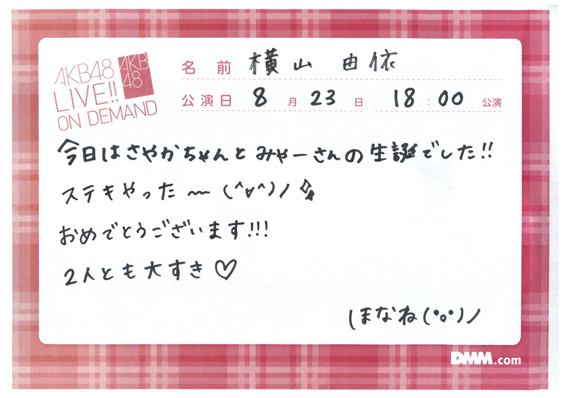 AKB48
LIVE!!
ON DEMAND
AKB
48
名前 横山 由依
公演日 8月23日 18:00公演
今日はさやかちゃんとみゃーさんの生誕でした!!
ステキやった〜(^∀^)ノ
おめでとうございます!!!
2人とも大すき♡
ほなね(°o°)ノ
DMM.com